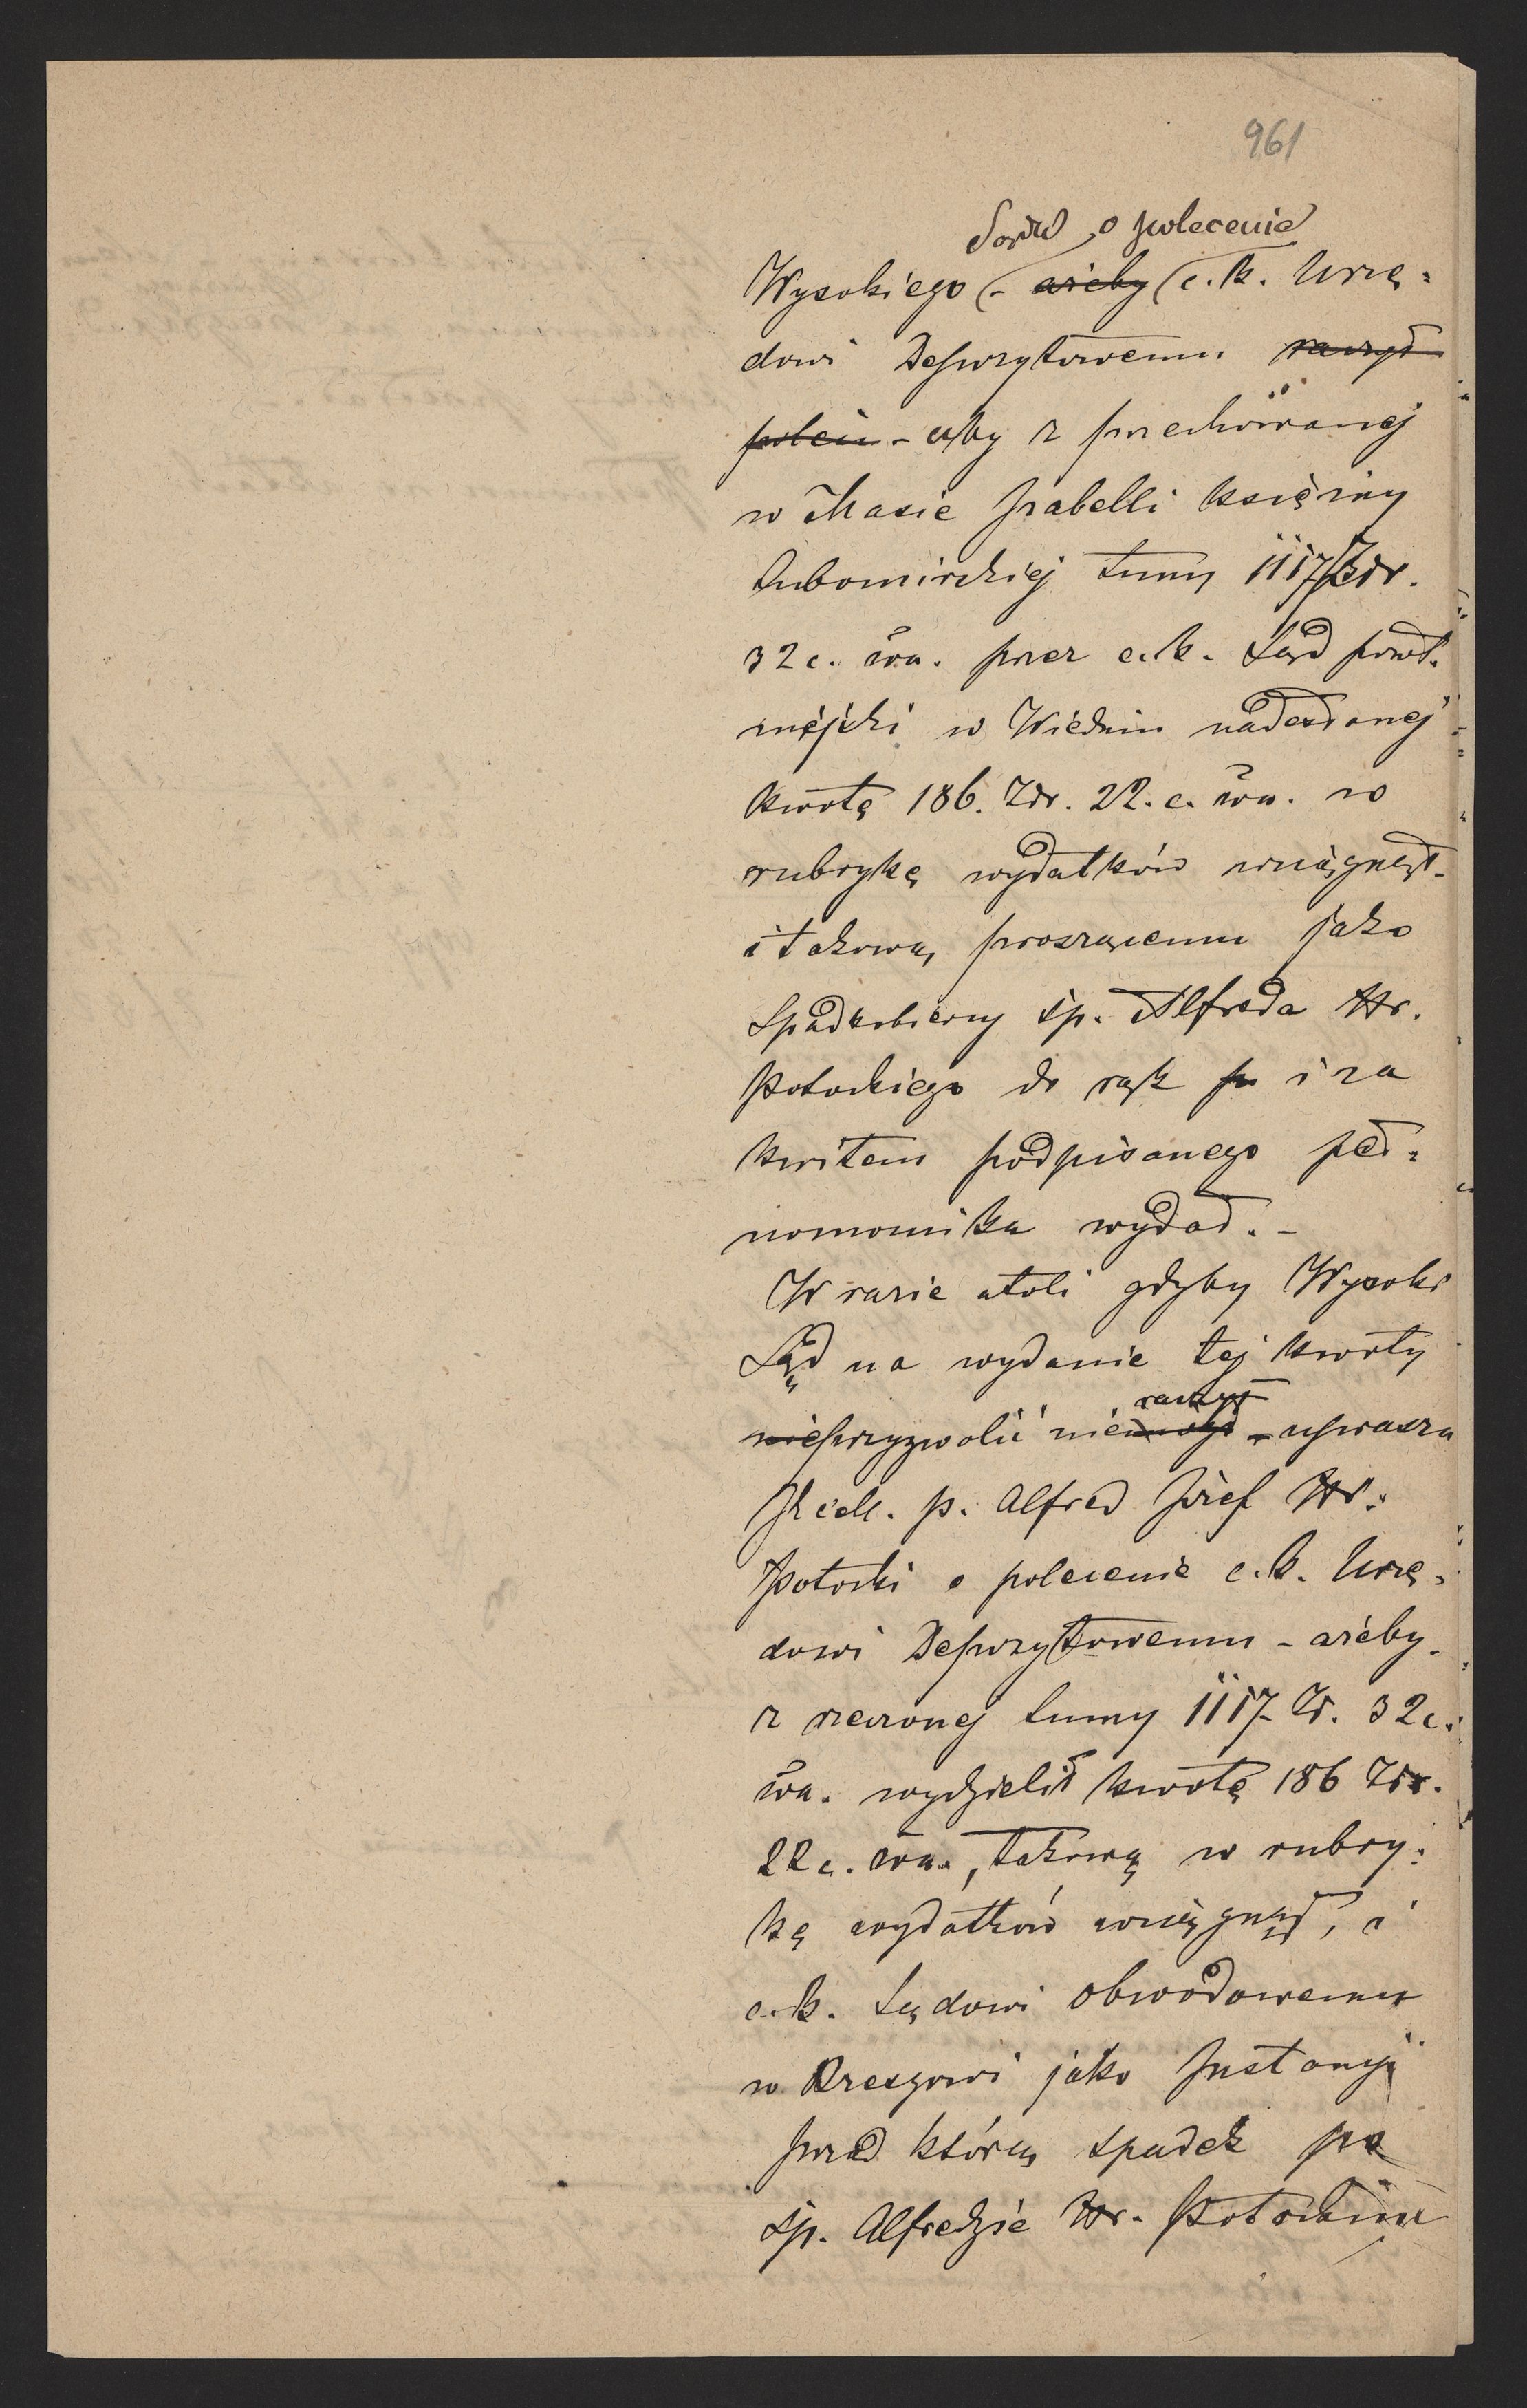 961
Sądu o polecenie
Wysokiego - ażeby c.k. Urzę=
dowi Depozytowemu raczył
polecić - aby z przechowanej
w Masie Izabelli księżny
Lubomirskiej sumy 1117 Złr.
32 c. wa. przez c.k. Sąd powt.
miejski w Wiedniu nadesłanej
kwotę 186. Złr. 22. c. wa. w
rubrykę wydatków wciągnął-
i takową proszącemu jako
Spadkobiercy śp. Alfreda Hr.
Potockiego do rąk i za
kwitem podpisanego peł=
nomocnika wydał. -
W razie atoli gdyby Wysoki
Sąd na wydanie tej kwoty
raczył
nieprzyzwolić nie - uprasza
JExcell. p. Alfred Józef Hr.
Potocki o polecenie c.k. Urzę=
dowi Depozytowemu - ażeby
z rzeczonej sumy 1117 Zł. 32 c.
wa. wydzielił kwotę 186 Złr.
22 c. wa., takową w rubry=
kę wydatków wciągnął, i
c.k. Sądowi obwodowemu
w Rzeszowi jako Instancyi
przed którą spadek po
śp. Alfredzie Hr. Potockim